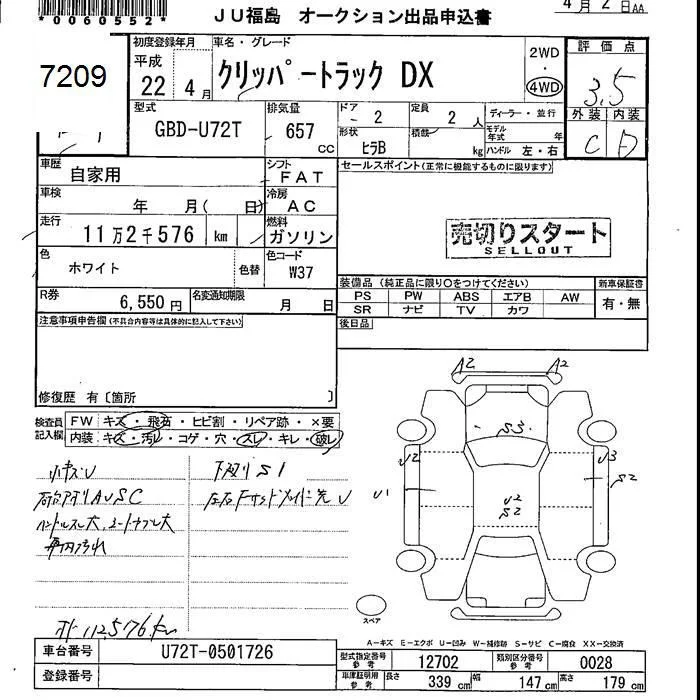 *0060552*
JU福島 オークション出品申込書
4月2日AA
7209
初度登録年月
平成
22年4月
車名・グレード
クリッパートラック DX
2WD
・
4WD
評価点
3.5
外装 内装
C D
型式
GBD-U72T
排気量
657
cc
ドア
- 2
定員
2人
ディーラー・並行
形状
ヒラB
積載
kg
モデル年式
年
ハンドル 左・右
車歴
自家用
シフト
FAT
セールスポイント(正常に機能するものに限ります)
車検
年 月( 日)
冷房
AC
走行
11万2千576 km
燃料
ガソリン
売切りスタート
SELLOUT
色
ホワイト
色替
色コード
W37
R券
6,550円
名変通知期限
月 日
装備品(純正品に限り○をつけてください)
PS PW ABS エアB AW
SR ナビ TV カワ
新車保証書
有・無
後日品
注意事項申告欄(不具合内容等は具体的に記入して下さい)
修復歴 有〔箇所 〕
検査員記入欄
FW キズ・飛石・ヒビ割・リペア跡・×要
内装 キズ・汚レ・コゲ・穴・スレ・キレ・破レ
小キズU
下廻りS1
AUSC
ハンドルスレ大
車内汚れ
112,576km
A2 A2
S3
U2
U1
U2
S2
U3
S2
スペア
A-キズ E-エクボ U-凹み W-補修跡 S-サビ C-腐食 XX-交換済
車台番号
U72T-0501726
登録番号
型式指定番号
参考
12702
類別区分番号
参考
0028
車庫証明用
参考
長さ 339cm 幅 147cm 高さ 179cm